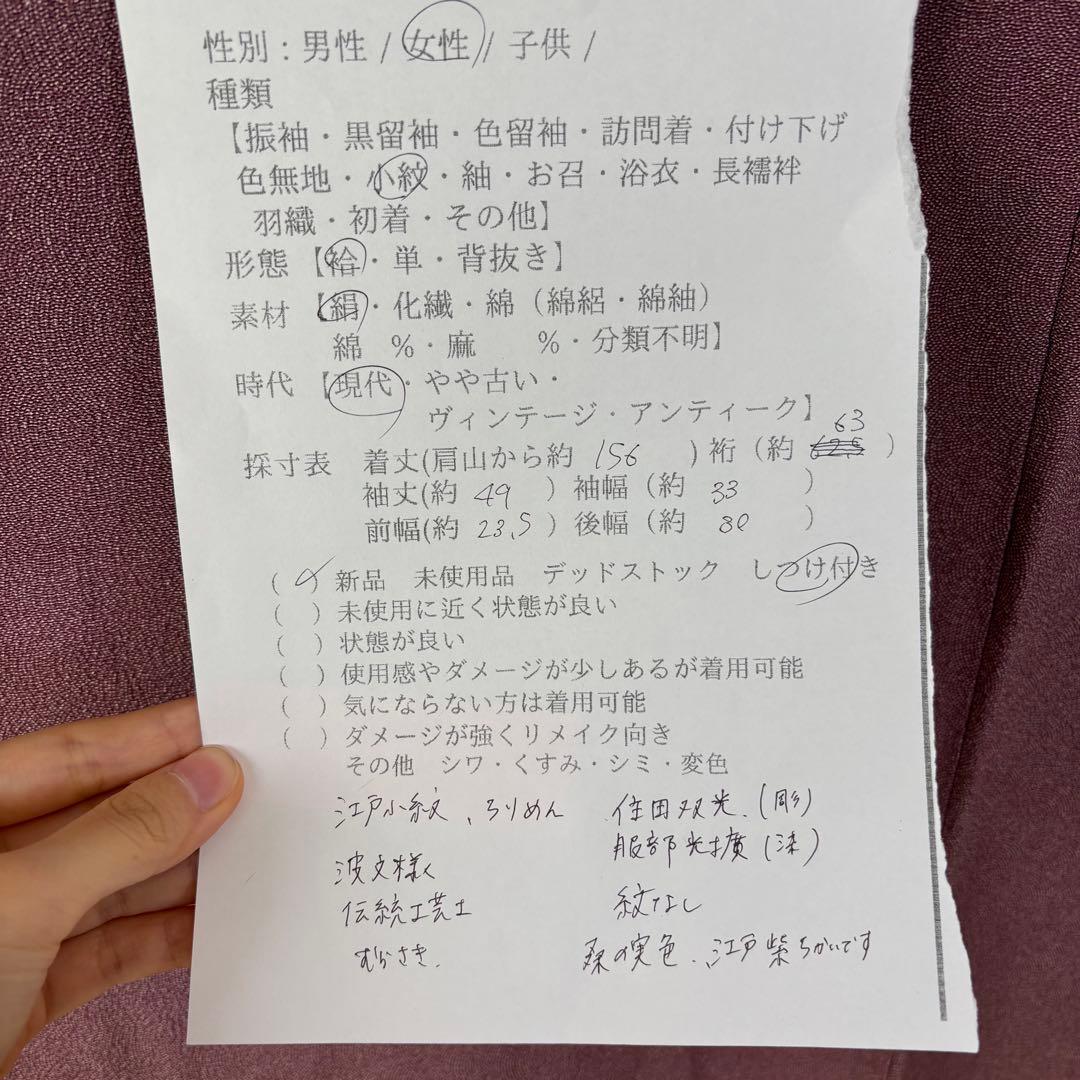 性別：男性 / 女性 / 子供 /
種類
【振袖・黒留袖・色留袖・訪問着・付け下げ
色無地・小紋・紬・お召・浴衣・長襦袢
羽織・初着・その他】
形態【袷・単・背抜き】
素材【絹・化繊・綿（綿絽・綿紬）
綿 %・麻 %・分類不明】
時代【現代・やや古い・
ヴィンテージ・アンティーク】
採寸表 着丈(肩山から約 156 ) 裄（約 63 ）
袖丈(約 49 ）袖幅（約 33 ）
前幅(約 23.5 ）後幅（約 30 ）
(✓) 新品 未使用品 デッドストック しつけ付き
( ) 未使用に近く状態が良い
( ) 状態が良い
( ) 使用感やダメージが少しあるが着用可能
( ) 気にならない方は着用可能
( ) ダメージが強くリメイク向き
その他 シワ・くすみ・シミ・変色
江戸小紋、ちりめん 住田双光.(彫)
服部光擴(染)
波文様
伝統工芸士 紋なし
むらさき. 桑の実色.江戸紫ちかいです